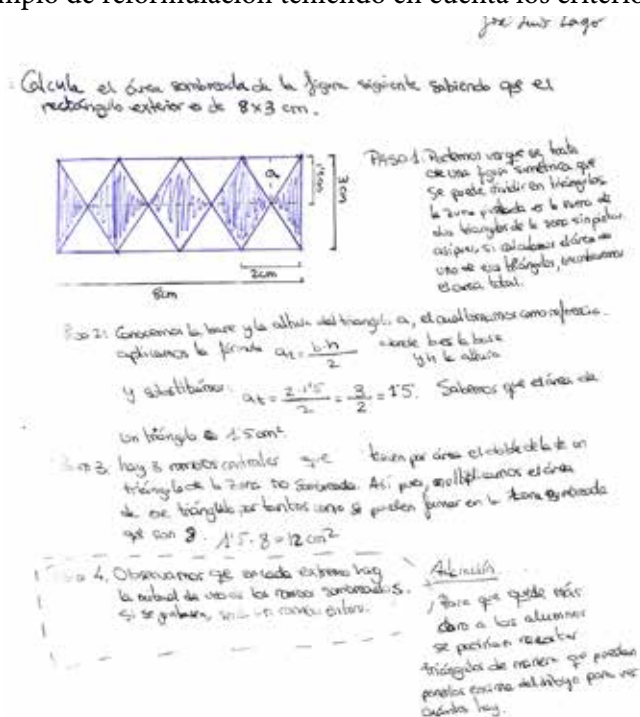 mplo de reformulación teniendo en cuenta los criterio
José Luis Lago
Calcula el área sombreada de la figura siguiente sabiendo que el
rectángulo exterior es de 8x3 cm.
a
1'5cm
3cm
2cm
8cm
PASO 1. Podemos ver que se trata
de una figura simétrica que
se puede dividir en triángulos
la zona pintada es la suma de
dos triángulos de la zona sin pintar
así pues, si calculamos el área de
uno de esos triángulos, encontraremos
el area total.
2: Conocemos la base y la altura del triangulo a, el cual tomamos como referencia.
aplicamos la fórmula at = b·h / 2 donde b es la base
y h la altura
y substituimos: at = 2·1'5 / 2 = 3 / 2 = 1'5. Sabemos que el área de
un triángulo es 1'5 cm²
3: hay 3 rombos centrales que tienen por área el doble de la de un
triángulo de la zona no sombreada. Así pues, multiplicamos el área
de ese triángulo por tantos como se pueden formar en la zona sombreada
que son 8. 1'5·8=12 cm²
4. Observamos que en cada extremo hay
la mitad de uno de los rombos sombreados.
Si se juntasen, un rombo entero.
, Para que quede más
claro a los alumnos
se podrían recortar
triángulos de manera que puedan
ponerlos encima del dibujo para ver
cuántos hay.